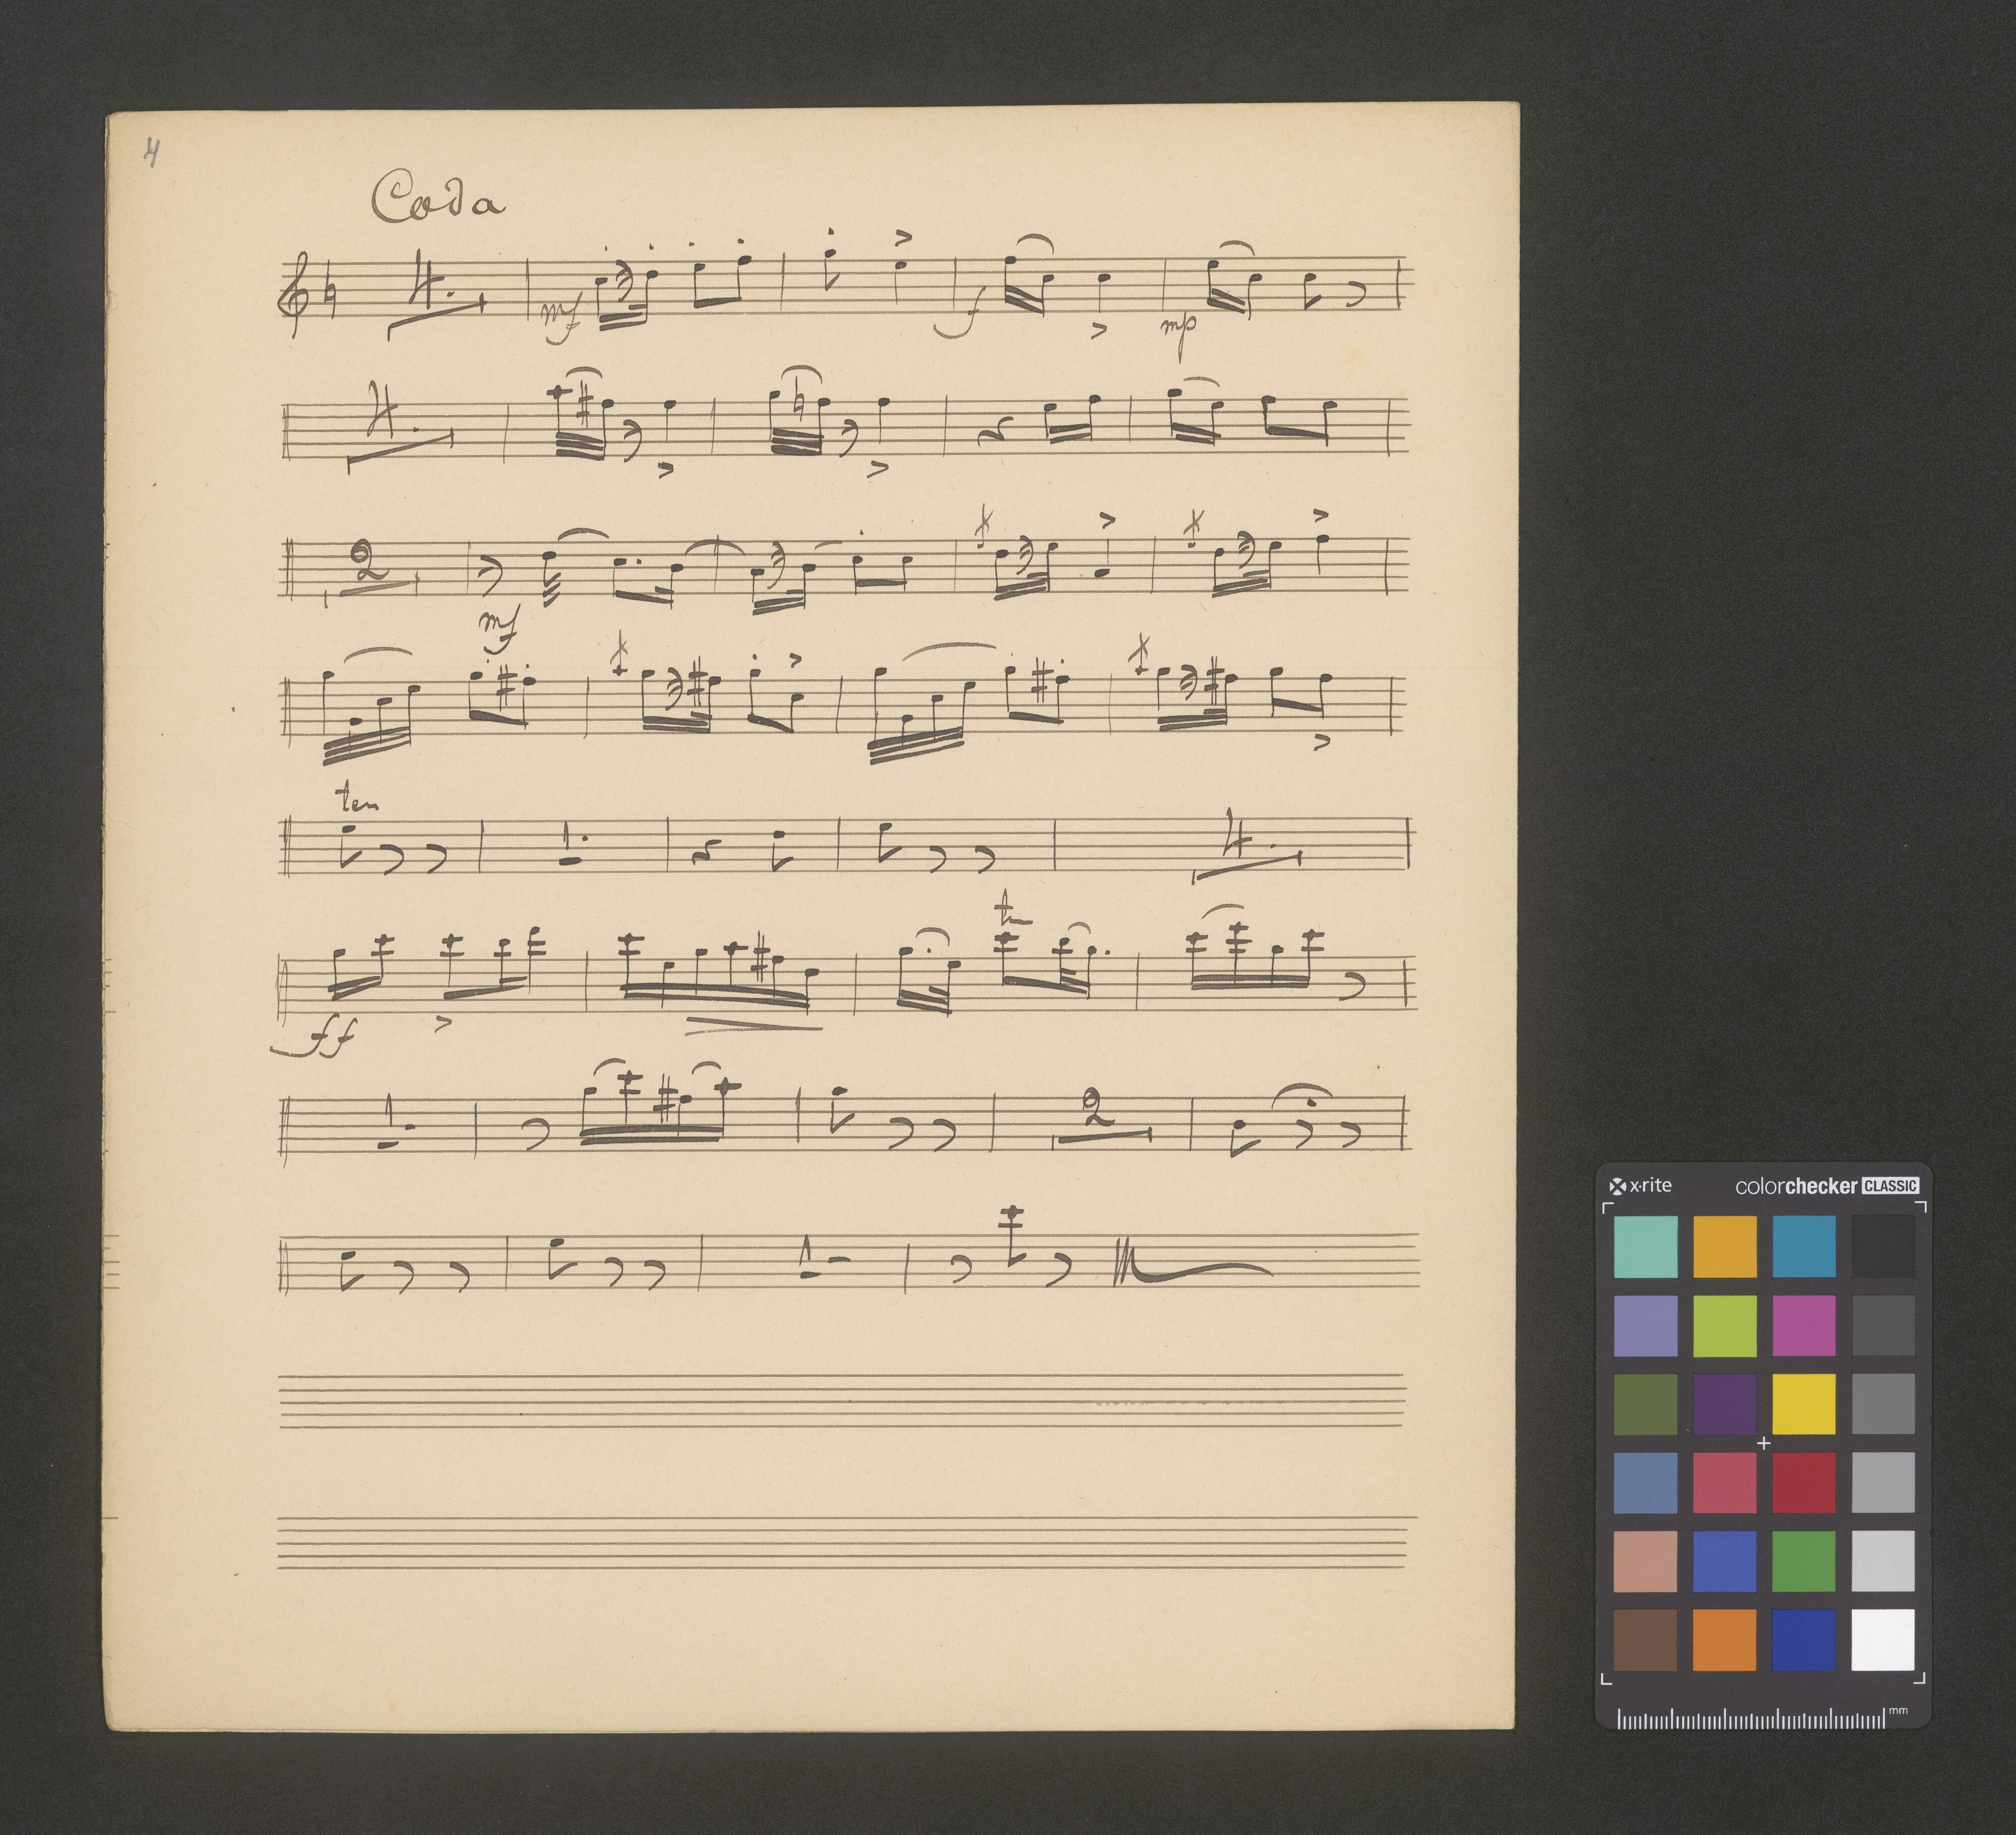 4
Coda
4.
mf
f
mp
4.
2
mf
ten
4.
ff
tr
2
x·rite colorchecker CLASSIC
mm